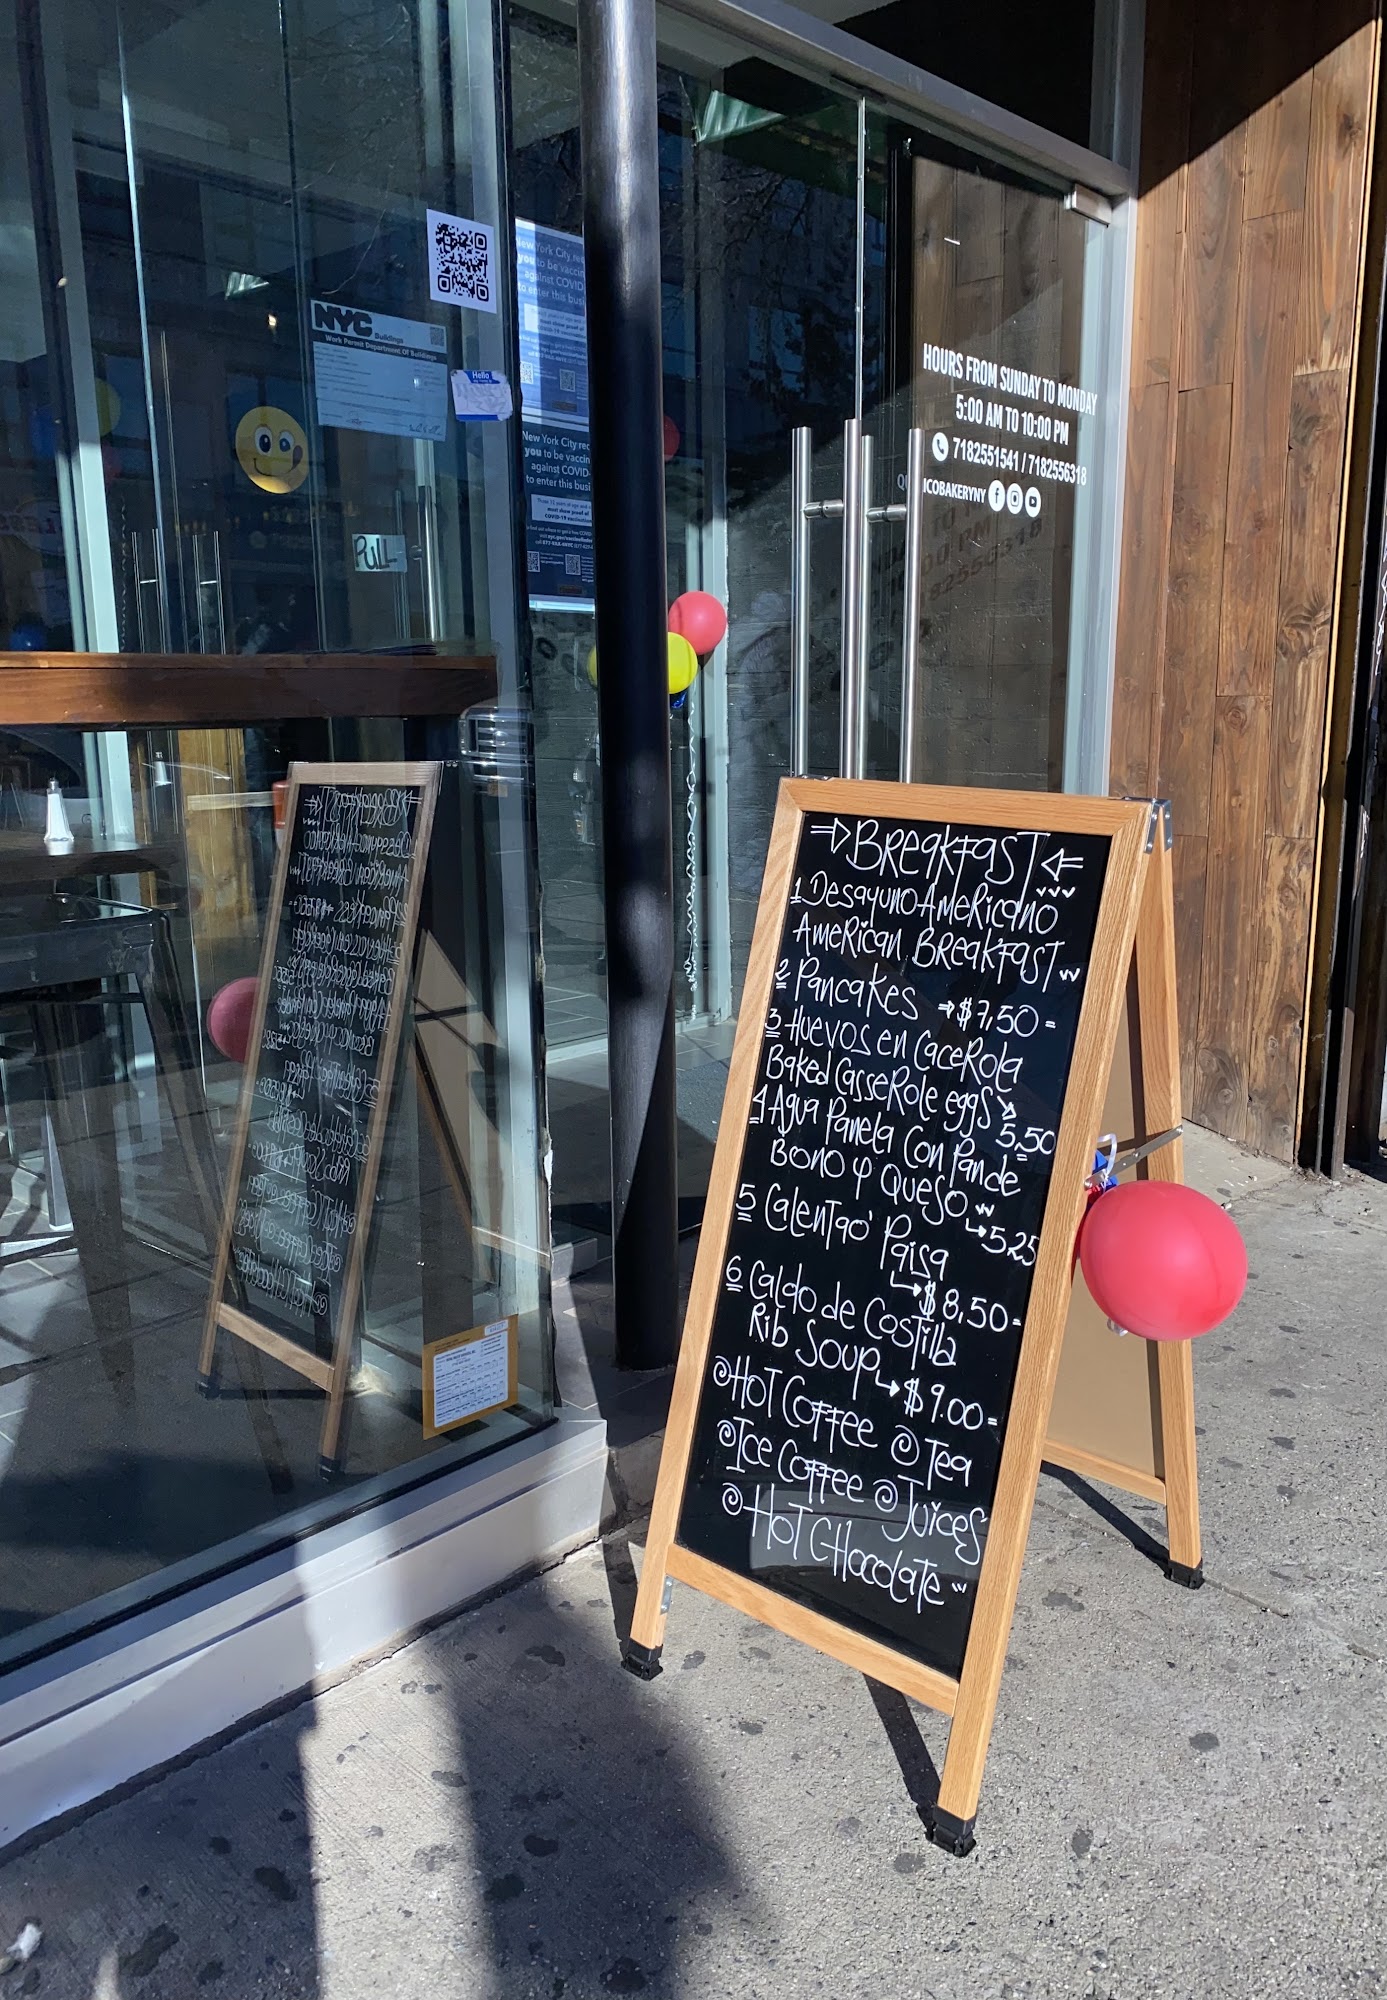 NYC Buildings
Work Permit Department Of Buildings
Hello
PULL
New York City
you to be vaccin
against COVID-
to enter this busi
New York City req
you to be vaccin
against COVID-
to enter this busi
must show proof of
COVID-19 vaccination
HOURS FROM SUNDAY TO MONDAY
5:00 AM TO 10:00 PM
7182551541 / 7182556318
ICOBAKERYNY
BREAKFAST
1 Desayuno Americano
American Breakfast
2 Pancakes $7,50
3 Huevos en Cacerola
Baked Casserole eggs
5,50
4 Agua Panela Con Pan de
Bono y Queso
5,25
5 Calentao' Paisa
$8,50
6 Caldo de Costilla
Rib Soup
$9.00
Hot Coffee Tea
Ice Coffee Juices
Hot Chocolate